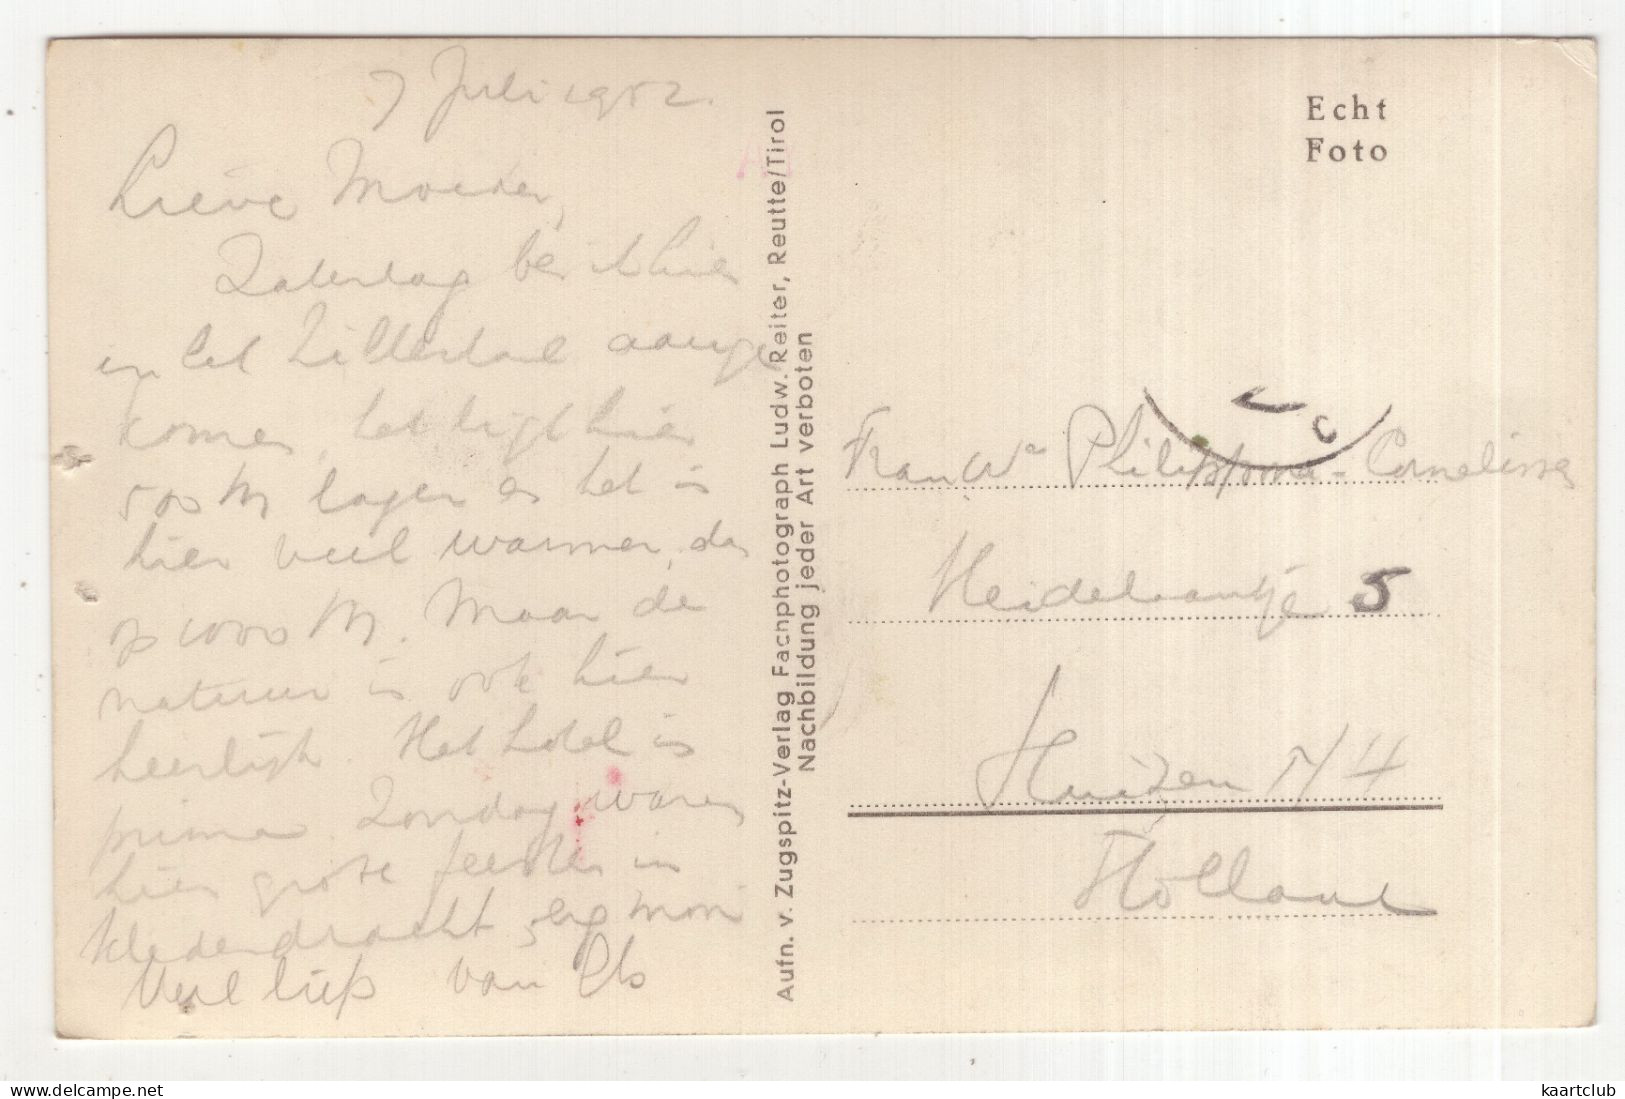 7 Juli 1952.
Lieve Moeder,
Zaterdag ben ik hier
in het Zillerdal aange
komen, het ligt hier
500 M lager en het is
hier veel warmer, dan
op 1000 M. Maar de
natuur is ook hier
heerlijk. Het hotel is
prima. Zondag waren
hier grote feesten in
klederdracht, erg mooi
Veel liefs van Els
Aufn. v. Zugspitz-Verlag Fachphotograph Ludw. Reiter, Reutte/Tirol
Nachbildung jeder Art verboten
Echt
Foto
Philippona-Cornelisse
Heidelaantje 5
Huizen N H
Holland
delcampe.net
kaartclub